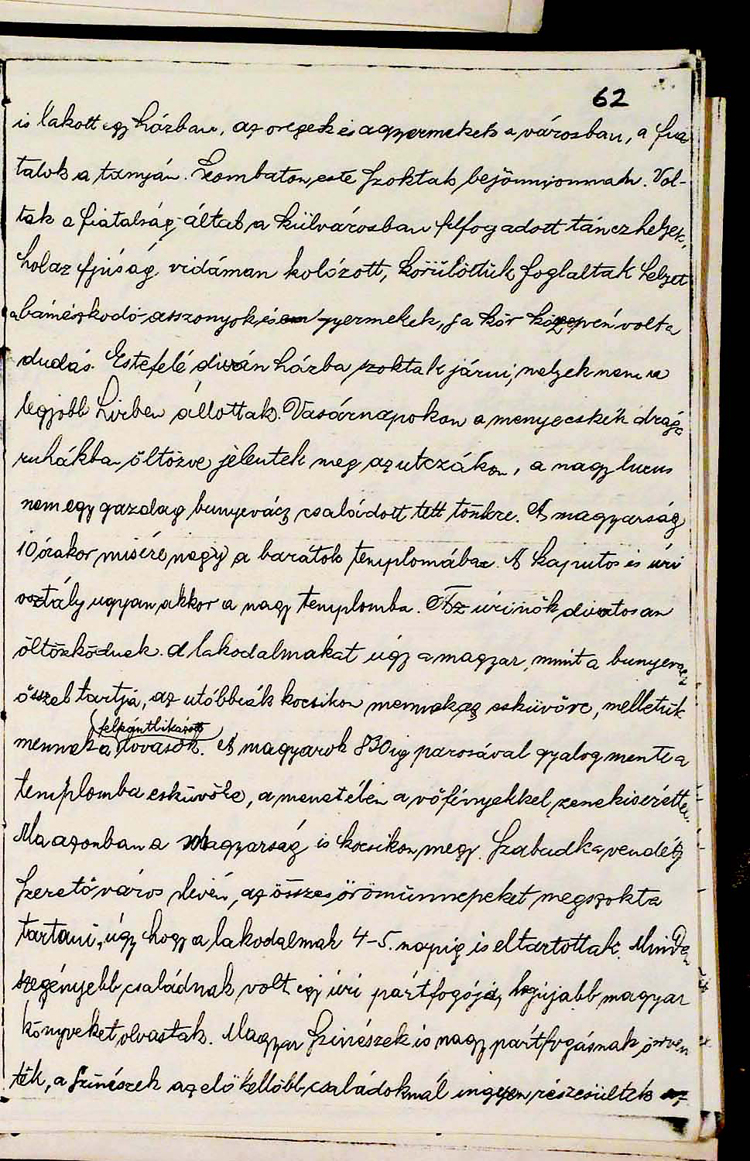 62
is lakott egy házban, az oregek és a gyermekek a városban, a fia
talok a tanyán. Szombaton este szoktak bejönni onnan. Vol-
tak a fiatalság által a külvárosban felfogadott táncz helyek,
hol az ifjúság vidáman kolózott, körülöttük foglaltak helyet
a bámészkodó asszonyok és gyermekek, s a kör közepén volt a
dudás. Estefelé diván házba szoktak járni, melyek nem a
legjobb hirben állottak. Vasárnapokon a menyecskék drága
ruhákba öltözve jelentek meg az utczákon, a nagy luxus
nem egy gazdag bunyevácz családott tett tönkre. A magyarság
10 órakor misére megy a barátok templomába. A kaputos és úri
osztály ugyan akkor a nagy templomba. Az úrinők divatosan
öltözködnek. A lakodalmakat úgy a magyar, mint a bunyevacz
ősszel tartja, az utóbbiak kocsikon mennek az esküvőre, mellettük
mennek a felpántlikázott lovasok. A magyarok 830ig parosával gyalog mente a
templomba esküvőre, a menet élén a vőfényekkel zene kisérette.
Ma azonban a magyarság is kocsikon megy. Szabadka vendég
szerető város lévén, az összes örömünnepeket megszokta
tartani, úgy hogy a lakodalmak 4-5. napig is eltartottak. Minden
szegényebb családnak volt egy úri pártfogója, legújabb magyar
könyveket olvastak. Magyar szinészek is nagy pártfogásnak örven
tek, a szinészek az elő kellőbb családoknál ingyen részesültek